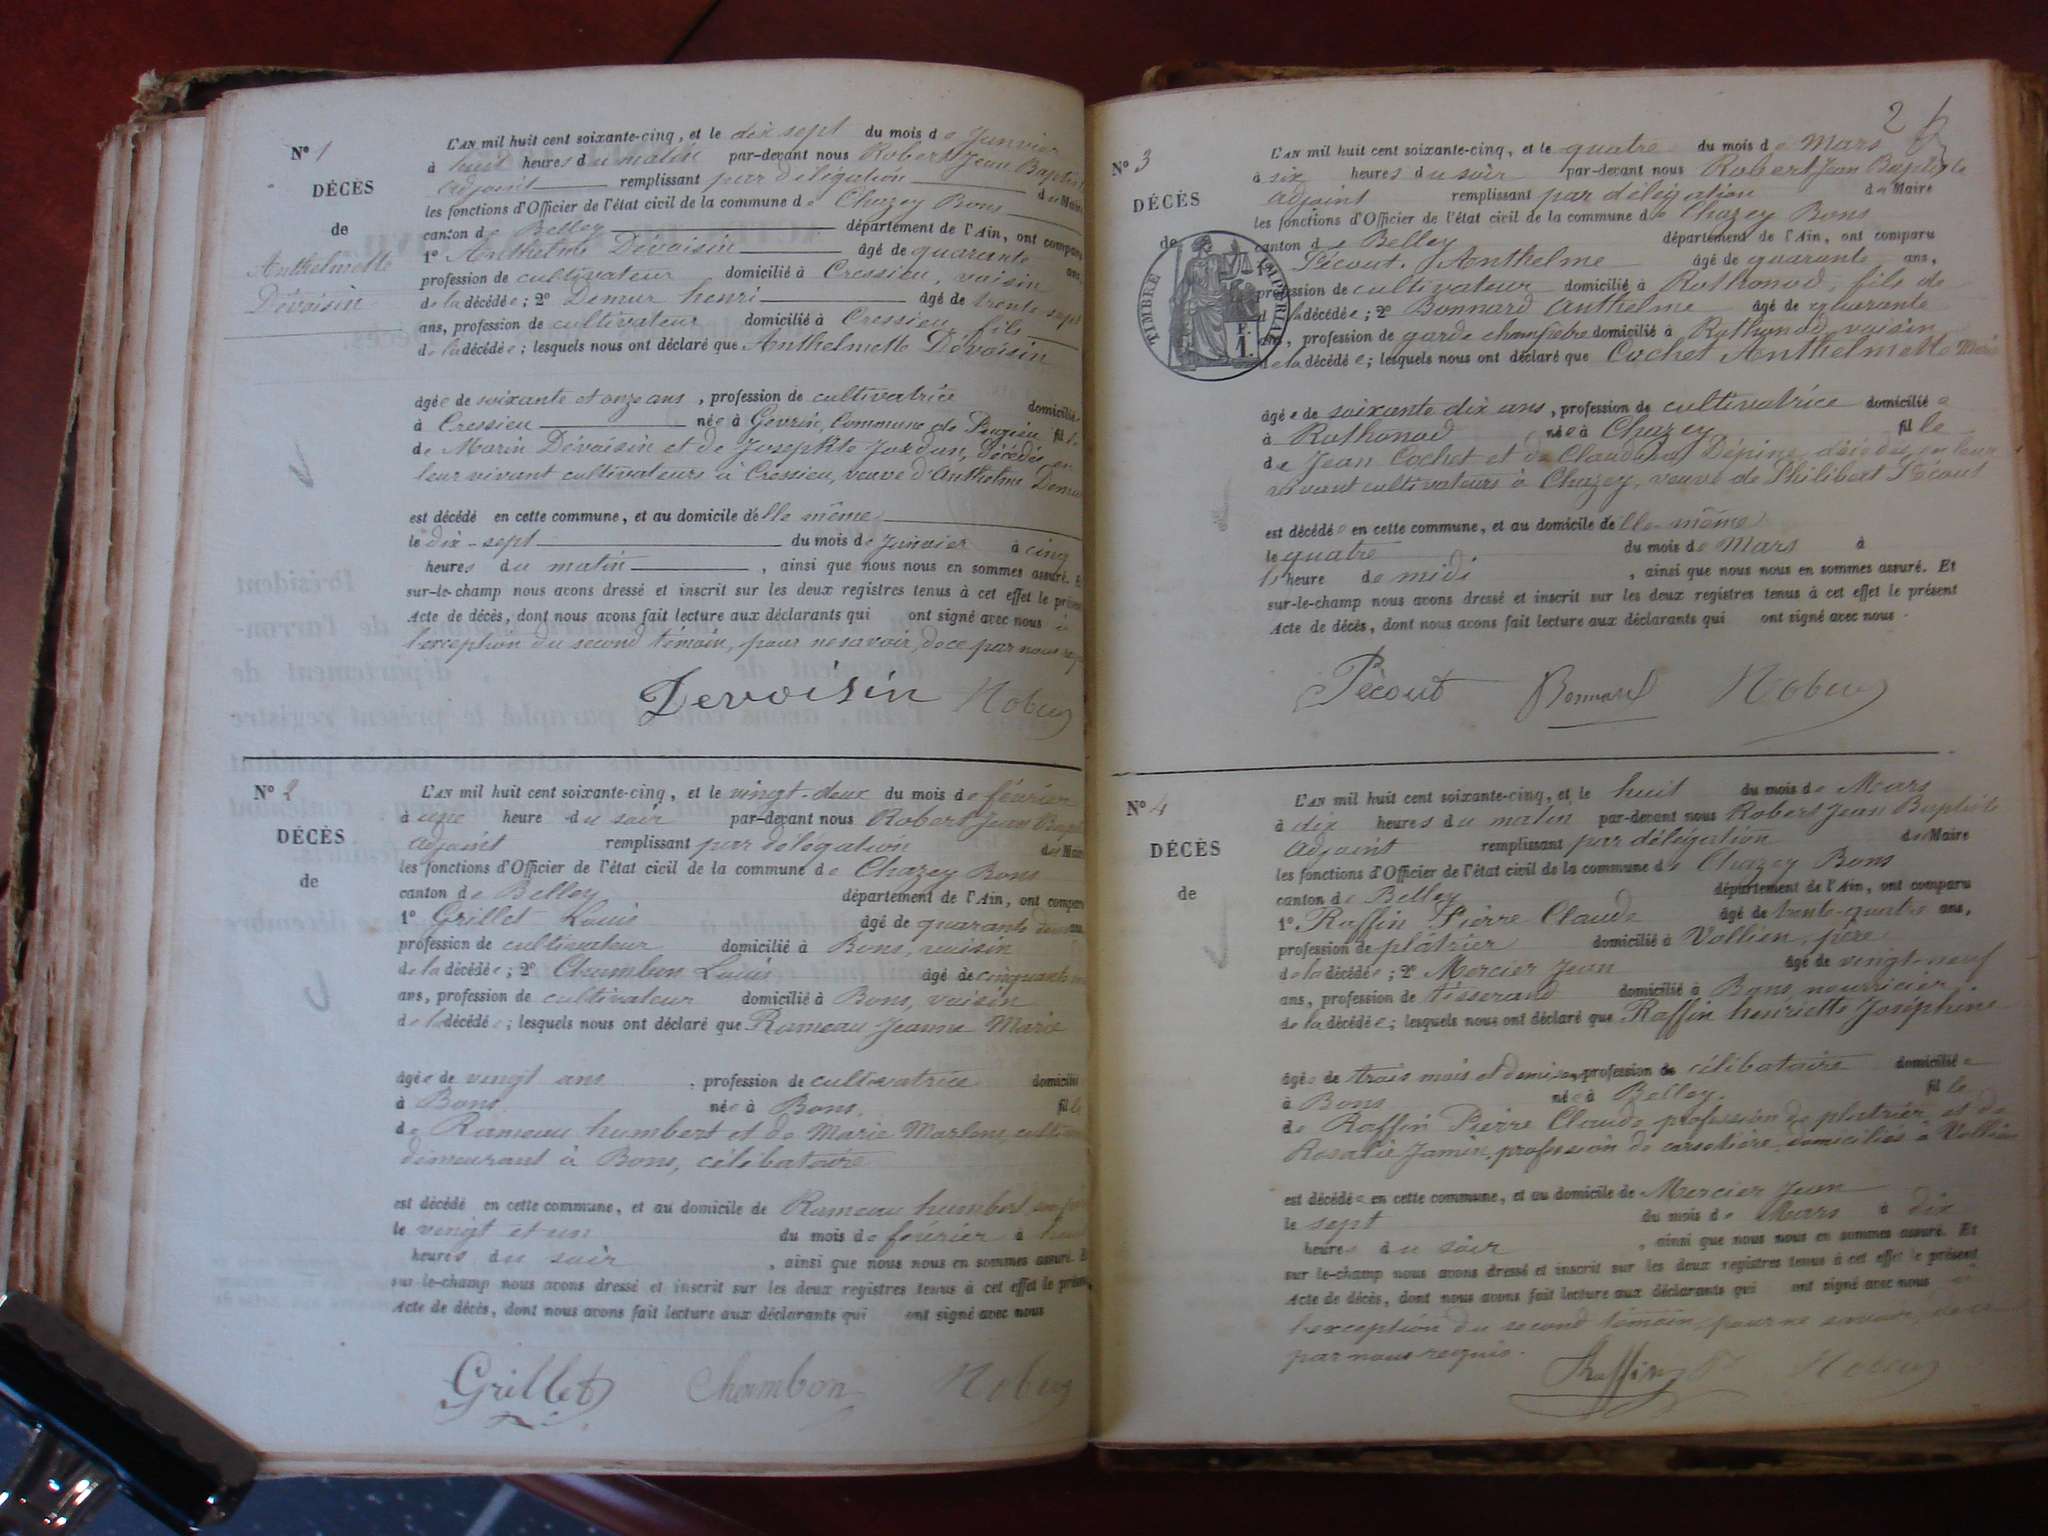 N° 1
DÉCÈS
de
Anthelmette
Dévoisin
L'AN mil huit cent soixante-cinq, et le dix sept du mois de Janvier
à huit heures du matin par-devant nous Robert Jean Baptist
adjoint remplissant par délégation de Maire
les fonctions d'Officier de l'état civil de la commune de Chazey Bons
canton de Belley département de l'Ain, ont comparu
1° Anthelme Dévoisin âgé de quarante ans,
profession de cultivateur domicilié à Cressieu, voisin
de la décédée; 2° Demur henri âgé de trente sept
ans, profession de cultivateur domicilié à Cressieu, fils
de la décédée; lesquels nous ont déclaré que Anthelmette Dévoisin
âgée de soixante et onze ans, profession de cultivatrice domicilié
à Cressieu née à Gevrin, Commune de Pugieu fille
de Marin Dévoisin et de Josephte Jordan, décédés, en
leur vivant cultivateurs à Cressieu, veuve d'Anthelme Demur
est décédé en cette commune, et au domicile d'elle même
le dix-sept du mois de Janvier à cinq
heures du matin, ainsi que nous nous en sommes assuré. Et
sur-le-champ nous avons dressé et inscrit sur les deux registres tenus à cet effet le présent
Acte de décès, dont nous avons fait lecture aux déclarants qui ont signé avec nous à
l'exception du second témoin, pour ne savoir, de ce par nous
Devoisin
N° 2
DÉCÈS
de
L'AN mil huit cent soixante-cinq, et le vingt-deux du mois de février
à une heure du soir par-devant nous Robert Jean Bapt
adjoint remplissant par délégation de Maire
les fonctions d'Officier de l'état civil de la commune de Chazey Bons
canton de Belley département de l'Ain, ont comparu
1° Grillet Louis âgé de quarante deux ans,
profession de cultivateur domicilié à Bons, voisin
de la décédée; 2° Chambon Louis âgé de cinquante
ans, profession de cultivateur domicilié à Bons, voisin
de la décédée; lesquels nous ont déclaré que Rameau Jeanne Marie
âgée de vingt ans, profession de cultivatrice domicilié
à Bons née à Bons. fille
de Rameau humbert et de Marie
demeurant à Bons, célibataire
est décédé en cette commune, et au domicile de Rameau humbert, son père
le vingt et un du mois de février à
heures du soir, ainsi que nous nous en sommes assuré. Et
sur-le-champ nous avons dressé et inscrit sur les deux registres tenus à cet effet le présent
Acte de décès, dont nous avons fait lecture aux déclarants qui ont signé avec nous
Grillet Chambon
2
N° 3
DÉCÈS
de
TIMBRE IMPERIAL
F.
1.
L'AN mil huit cent soixante-cinq, et le quatre du mois de Mars
à six heures du soir par-devant nous Robert Jean Baptiste
adjoint remplissant par délégation de Maire
les fonctions d'Officier de l'état civil de la commune de Chazey Bons
canton de Belley département de l'Ain, ont comparu
1° Pécout Anthelme âgé de quarante ans,
profession de cultivateur domicilié à Rothonod, fils de
la décédée; 2° Bonnard Anthelme âgé de quarante
ans, profession de garde champêtre domicilié à Rothonod, voisin
de la décédée; lesquels nous ont déclaré que Cochet Anthelmette Marie
âgée de soixante dix ans, profession de cultivatrice domiciliée
à Rothonod née à Chazey fille
de Jean Cochet et de Claudine Dépine, décédés, en leur
vivant cultivateurs à Chazey, veuve de Philibert Pécout
est décédée en cette commune, et au domicile d'elle-même
le quatre du mois de Mars à
heure de midi, ainsi que nous nous en sommes assuré. Et
sur-le-champ nous avons dressé et inscrit sur les deux registres tenus à cet effet le présent
Acte de décès, dont nous avons fait lecture aux déclarants qui ont signé avec nous.
Pécout Bonnard
N° 4
DÉCÈS
de
L'AN mil huit cent soixante-cinq, et le huit du mois de Mars
à dix heures du matin par-devant nous Robert Jean Baptiste
adjoint remplissant par délégation de Maire
les fonctions d'Officier de l'état civil de la commune de Chazey Bons
canton de Belley département de l'Ain, ont comparu
1° Raffin Pierre Claude âgé de trente-quatre ans,
profession de plâtrier domicilié à Vollien, père
de la décédée; 2° Mercier Jean âgé de vingt-neuf
ans, profession de tisserand domicilié à Bons, nourricier
de la décédée; lesquels nous ont déclaré que Raffin henriette Joséphine
âgée de trois mois et demi, profession de célibataire domiciliée
à Bons née à Belley. fille
de Raffin Pierre Claude, profession de plâtrier, et de
Rosalie Jamin, profession de corsetière, domiciliés à Vollien
est décédée en cette commune, et au domicile de Mercier Jean
le sept du mois de Mars à dix
heures du soir, ainsi que nous nous en sommes assuré. Et
sur-le-champ nous avons dressé et inscrit sur les deux registres tenus à cet effet le présent
Acte de décès, dont nous avons fait lecture aux déclarants qui ont signé avec nous à
l'exception du second témoin, pour ne savoir, de ce
par nous requis.
Raffin